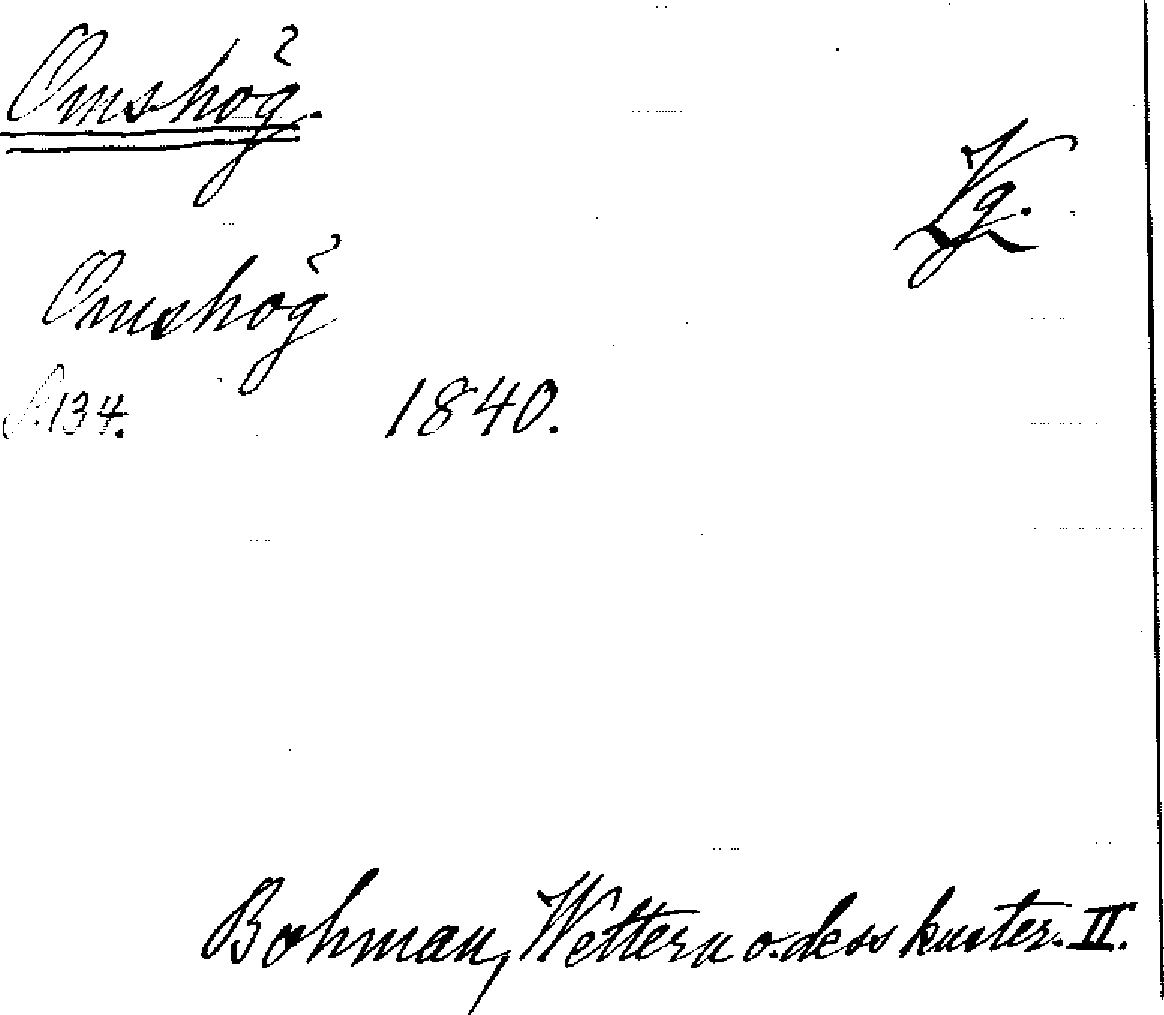 Omshög.
Vg.
Omshög
S. 134. 1840.
Bohman, Wettern o. dess kuster. II.